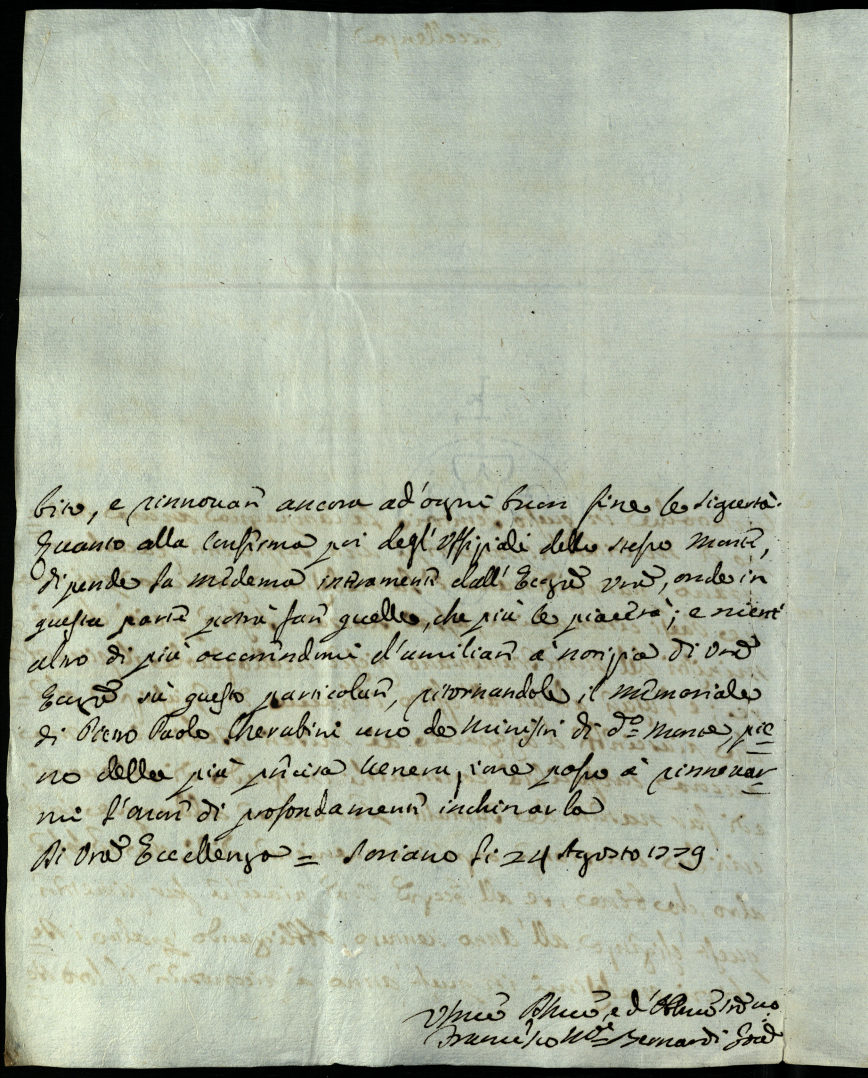 bito, e rinnovarn ancora ad'ogni buon fine le sigurtà.
Quanto alla Conferma poi degl'Offiziali dello stesso Monte,
dipende la medema interamente dall'Eccza Vra, onde in
questa parte potrà farn quello, che più le piacerà; e nient'
altro di più occorrendomi d'umiliarn à notizia di Vra
Eccza sù questo particolarn, ritornandole il memoriale
di Pietro Paolo Cherubini uno de Ministri di do Monte, pie=
no della più precisa venerazione passo à rinnovar=
mi l'onorn di profondamente inchinarla
Di Vra Eccellenza = Soriano li 24 Agosto 1779
Umo Dmo, e d'Obbmo Serre
Francesco Ma Bernardi Govre